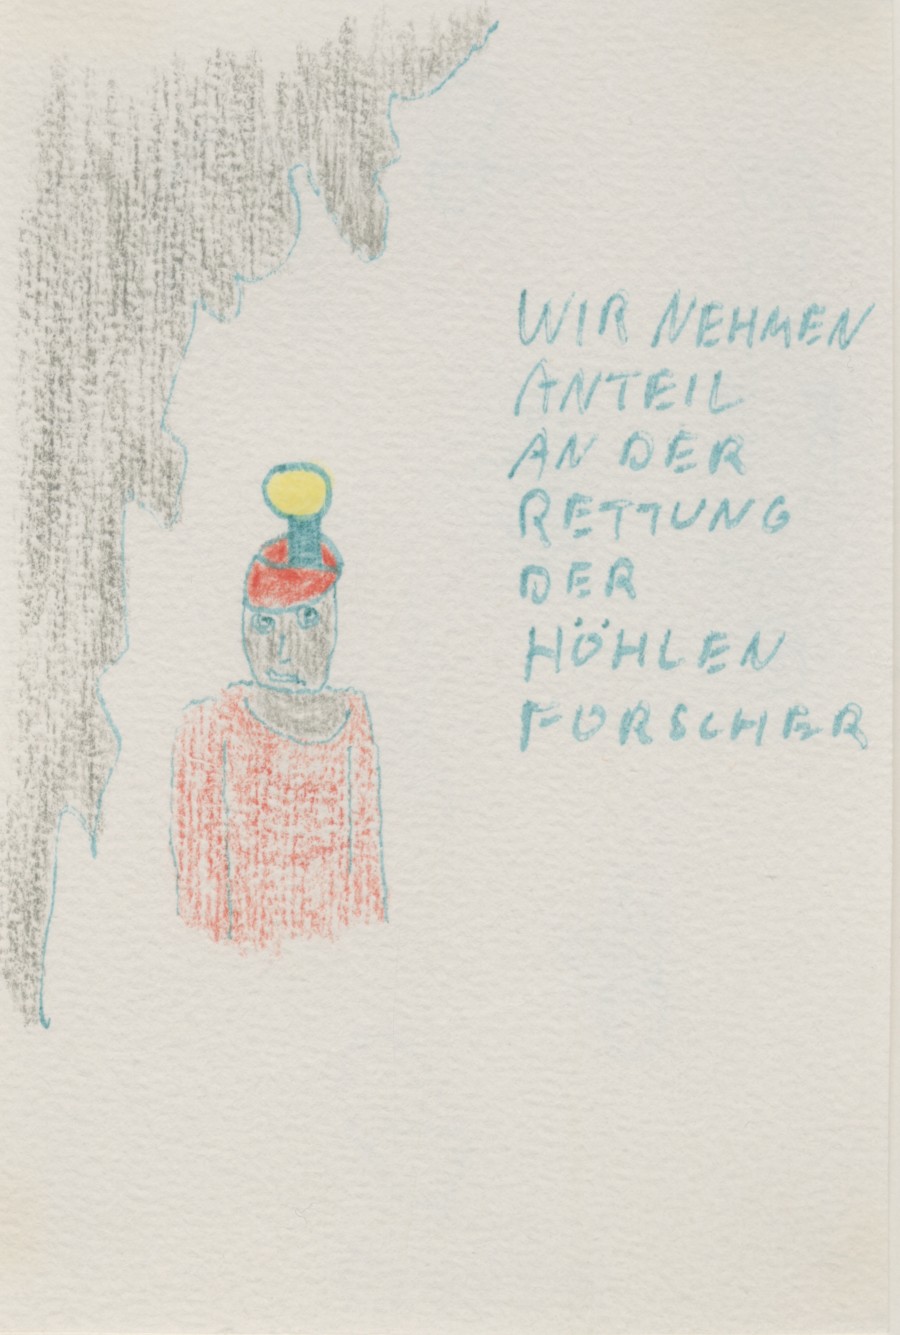 WIR NEHMEN
ANTEIL
AN DER
RETTUNG
DER
HÖHLEN
FORSCHER